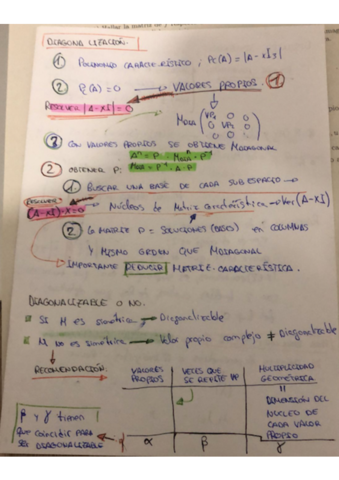 DIAGONALIZACIÓN:
① POLINOMIO CARACTERÍSTICO; Pc(A) = |A-XI|
② P(A) = 0 → VALORES PROPIOS.
RESOLVER |A-XI| = 0
MDIAG (VP₁ 0 0
0 VP₂ 0
0 0 )
③ CON VALORES PROPIOS SE OBTIENE MDIAGONAL
2 OBTENER P:
① BUSCAR UNA BASE DE CADA SUBESPACIO
RESOLVER
(A-XI)·X=0 Núcleos de Matriz Característica → Ker(A-XI)
② LA MATRIZ P = SOLUCIONES (BASES) en COLUMNAS
Y MISMO ORDEN QUE MDIAGONAL
IMPORTANTE REDUCIR MATRIZ CARACTERÍSTICA.
DIAGONALIZABLE O NO.
Si M es simétrica → Diagonalizable
M no es simétrica → Valor propio complejo ≠ Diagonalizable
RECOMENDACIÓN:
VALORES PROPIOS
VECES QUE SE REPITE VP
MULTIPLICIDAD GEOMÉTRICA
=
DIMENSIÓN DEL
NÚCLEO DE
CADA VALOR
PROPIO
β y γ tienen
que coincidir PARA
SER DIAGONALIZABLE
α β γ